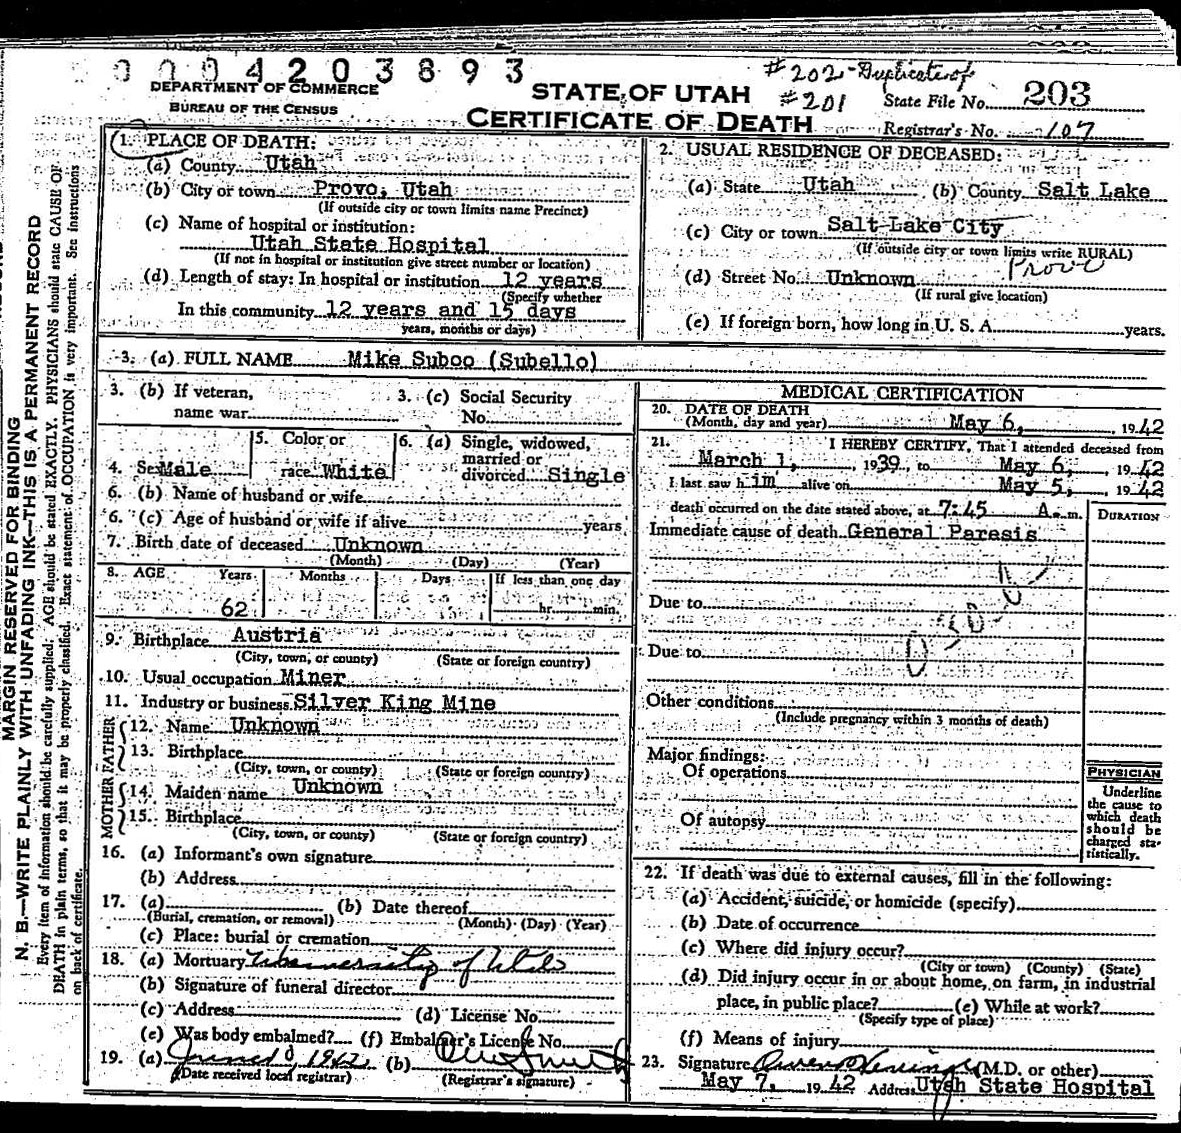 0004203893
DEPARTMENT OF COMMERCE
BUREAU OF THE CENSUS
STATE OF UTAH
CERTIFICATE OF DEATH
#202-Duplicate of
#201
State File No. 203
Registrar's No. 107
MARGIN RESERVED FOR BINDING
N. B.—WRITE PLAINLY WITH UNFADING INK—THIS IS A PERMANENT RECORD
Every item of information should be carefully supplied. AGE should be stated EXACTLY. PHYSICIANS should state CAUSE OF
DEATH in plain terms, so that it may be properly classified. Exact statement of OCCUPATION is very important. See instructions
on back of certificate.
1. PLACE OF DEATH:
(a) County Utah
(b) City or town Provo, Utah
(If outside city or town limits name Precinct)
(c) Name of hospital or institution:
Utah State Hospital
(If not in hospital or institution give street number or location)
(d) Length of stay: In hospital or institution 12 years
(Specify whether
In this community 12 years and 15 days
years, months or days)
2. USUAL RESIDENCE OF DECEASED:
(a) State Utah (b) County Salt Lake
(c) City or town Salt Lake City
(If outside city or town limits write RURAL)
Provo
(d) Street No. Unknown
(If rural give location)
(e) If foreign born, how long in U. S. A. years.
3. (a) FULL NAME Mike Suboo (Subello)
3. (b) If veteran,
name war
3. (c) Social Security
No.
4. Sex Male
5. Color or
race White
6. (a) Single, widowed,
married or
divorced Single
6. (b) Name of husband or wife
6. (c) Age of husband or wife if alive years
7. Birth date of deceased Unknown
(Month) (Day) (Year)
8. AGE Years Months Days If less than one day
62 hr. min.
9. Birthplace Austria
(City, town, or county) (State or foreign country)
10. Usual occupation Miner
11. Industry or business Silver King Mine
FATHER
12. Name Unknown
13. Birthplace
(City, town, or county) (State or foreign country)
MOTHER
14. Maiden name Unknown
15. Birthplace
(City, town, or county) (State or foreign country)
16. (a) Informant's own signature
(b) Address
17. (a) (b) Date thereof
(Burial, cremation, or removal) (Month) (Day) (Year)
(c) Place: burial or cremation
18. (a) Mortuary University of Utah
(b) Signature of funeral director
(c) Address (d) License No.
(e) Was body embalmed? (f) Embalmer's License No.
19. (a) 1942 (b) Smith
(Date received local registrar) (Registrar's signature)
MEDICAL CERTIFICATION
20. DATE OF DEATH
(Month, day and year) May 6, 1942
21. I HEREBY CERTIFY, That I attended deceased from
March 1, 1939, to May 6, 1942
I last saw him alive on May 5, 1942
death occurred on the date stated above, at 7:45 A. m.
DURATION
Immediate cause of death General Paresis
Due to
Due to
Other conditions
(Include pregnancy within 3 months of death)
Major findings:
Of operations
Of autopsy
PHYSICIAN
Underline
the cause to
which death
should be
charged sta-
tistically.
22. If death was due to external causes, fill in the following:
(a) Accident, suicide, or homicide (specify)
(b) Date of occurrence
(c) Where did injury occur?
(City or town) (County) (State)
(d) Did injury occur in or about home, on farm, in industrial
place, in public place? (e) While at work?
(Specify type of place)
(f) Means of injury
23. Signature (M.D. or other)
May 7, 1942 Address Utah State Hospital